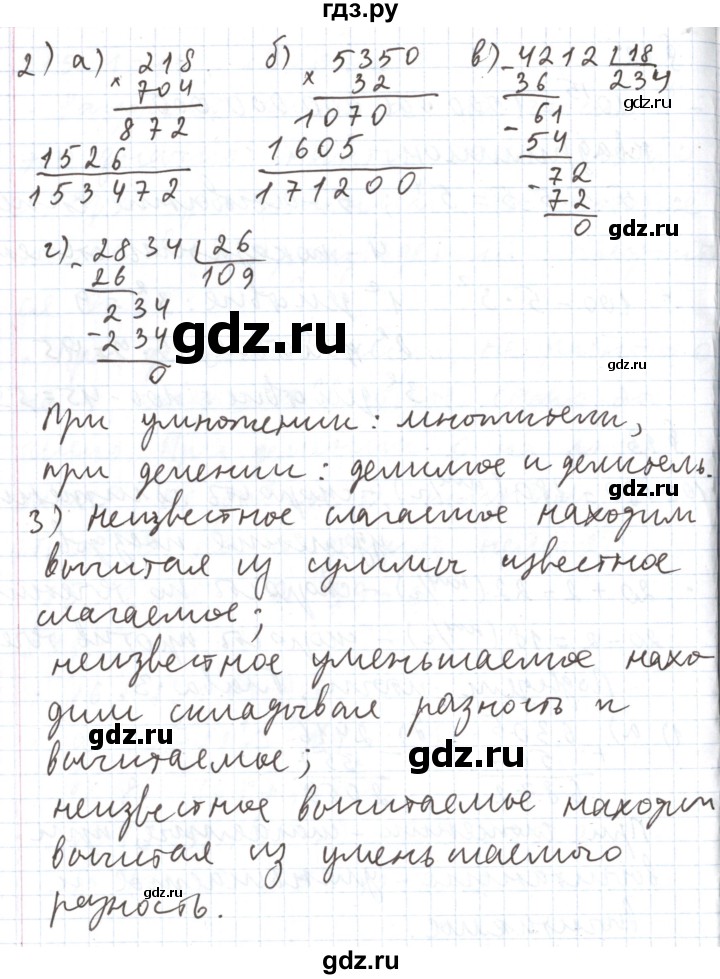 гдз.ру
2) а) 218 б) 5350 в) - 4212 | 18
× 704 × 32 36 234
872 1070 61
1526 1605 - 54
153472 171200 72
- 72
0
gdz.ru
г) - 2834 | 26
26 109
234
- 234
0
gdz.ru
gdz.ru
При умножении: множители,
при делении: делимое и делитель.
gdz.ru
3) Неизвестное слагаемое находим
вычитая из суммы известное
слагаемое;
gdz.ru
неизвестное уменьшаемое нахо-
дим складывая разность и
вычитаемое;
gdz.ru
gdz.ru
неизвестное вычитаемое находим
вычитая из уменьшаемого
разность.
gdz.ru
gdz.ru